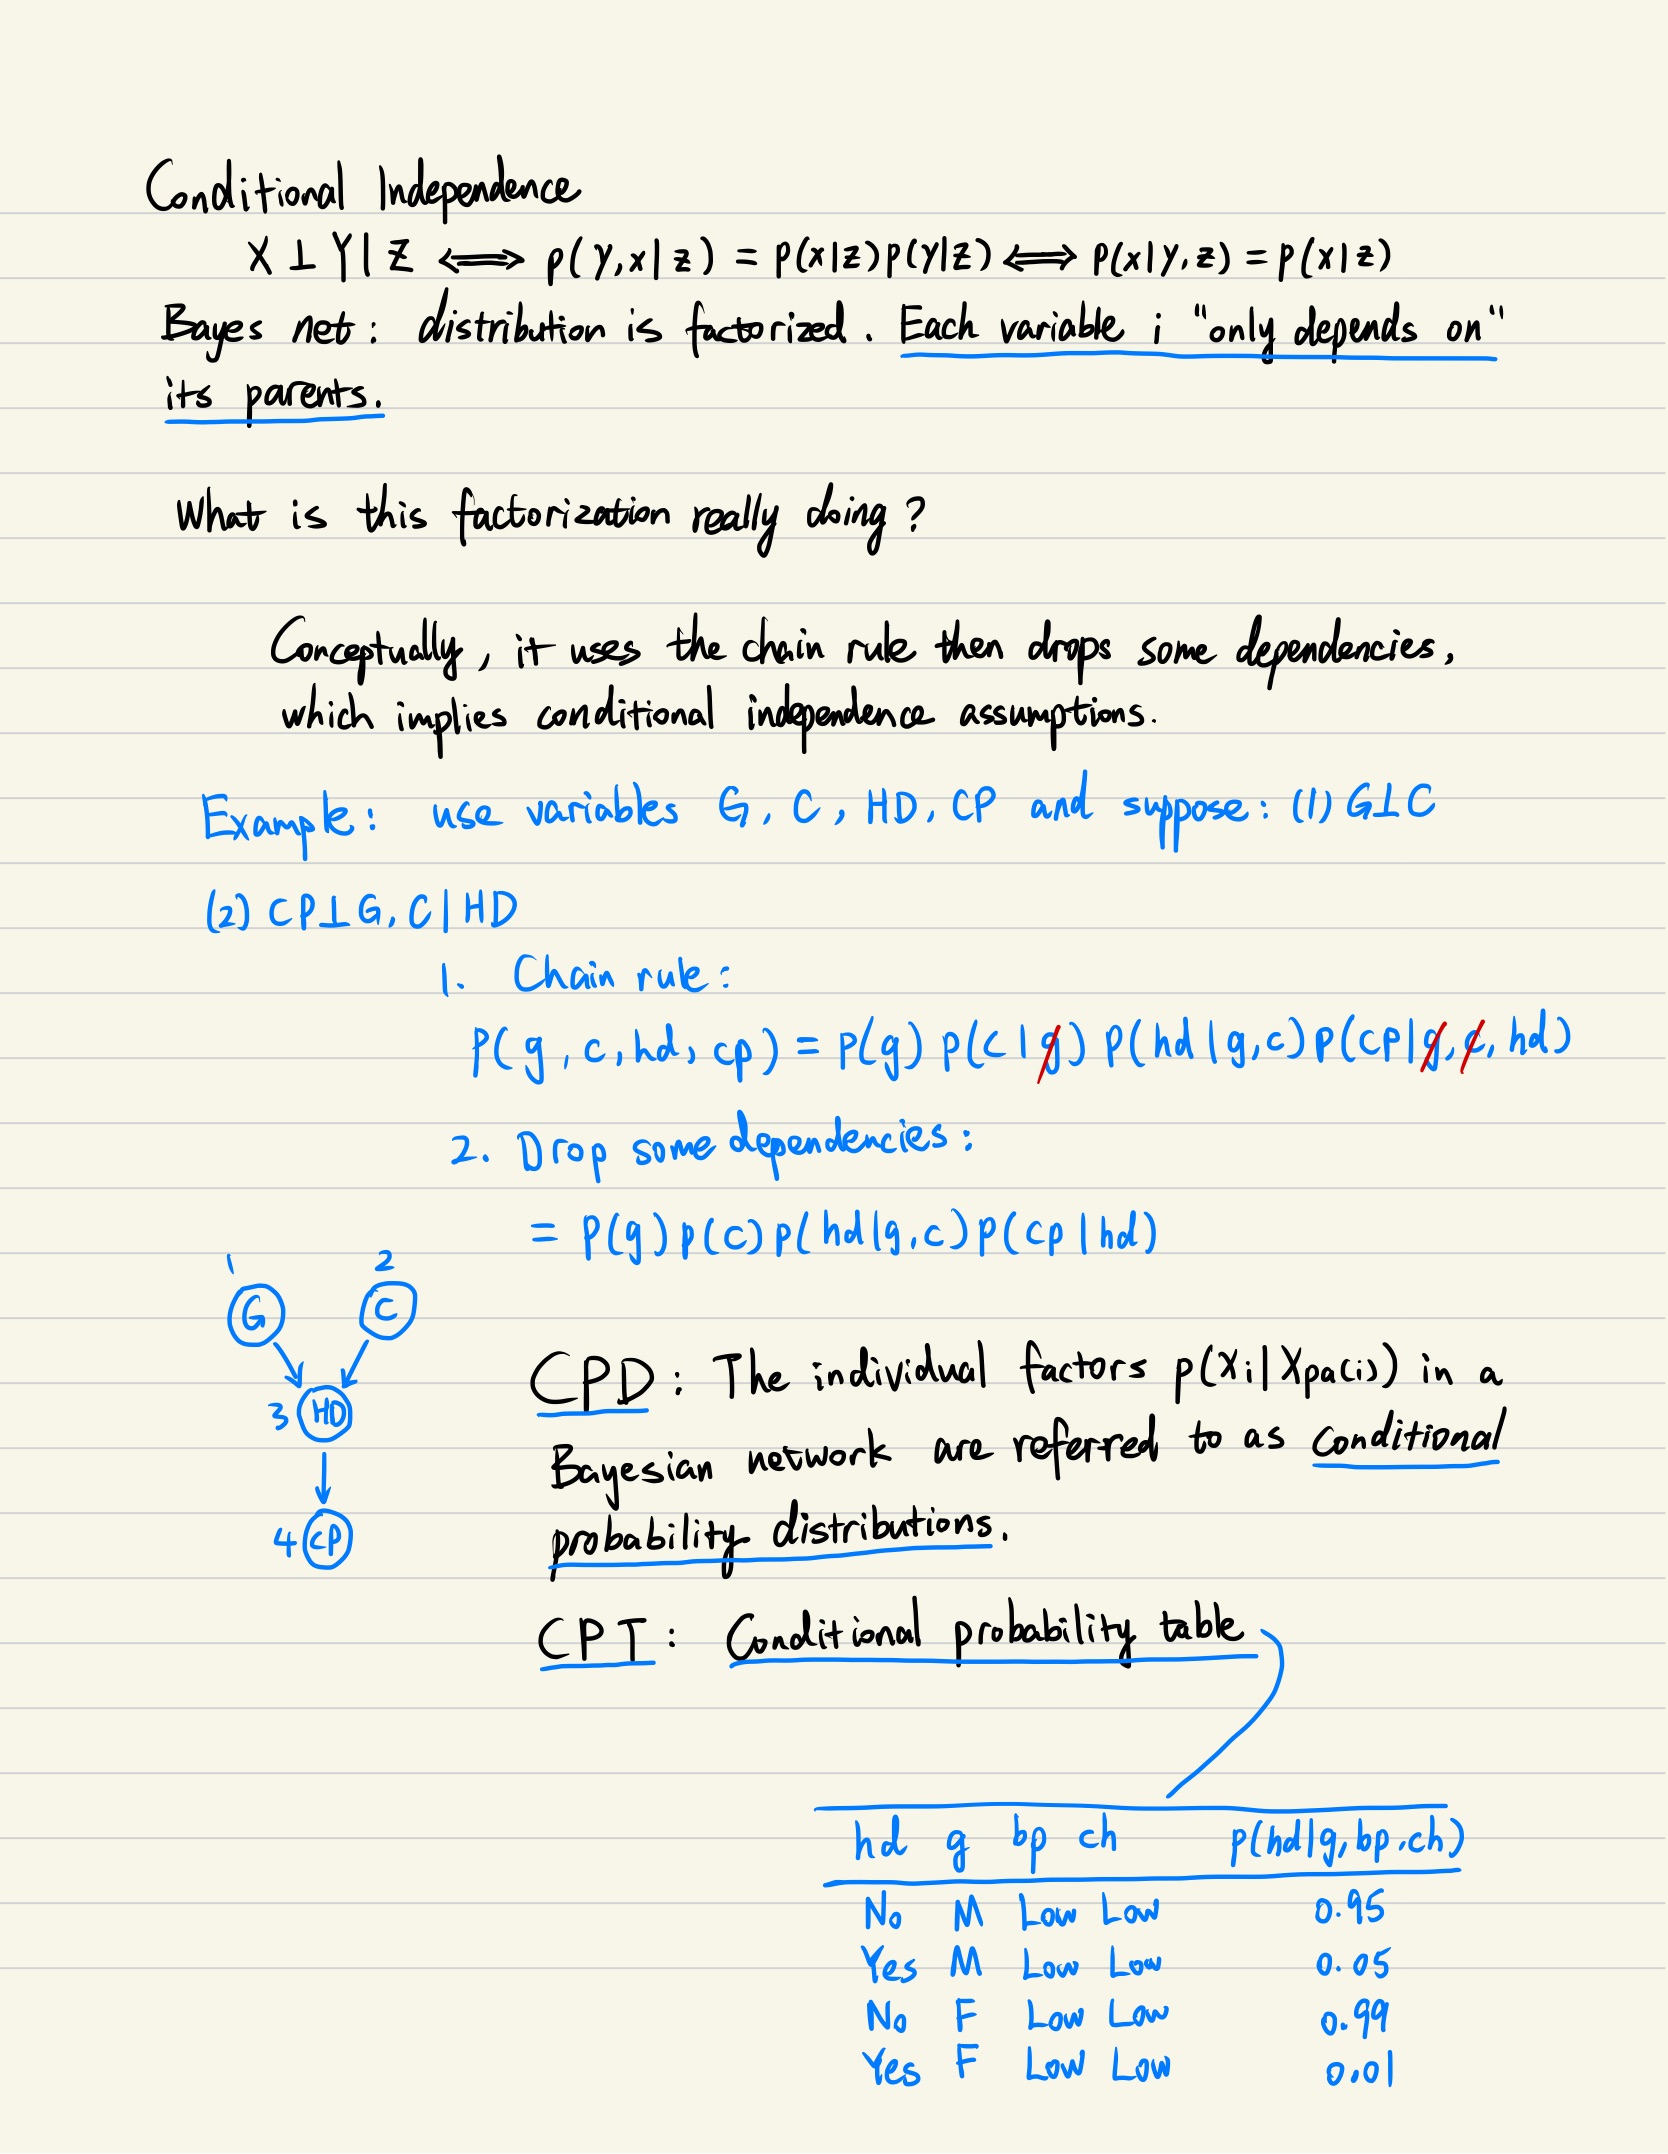 Conditional Independence
X ⊥ Y | Z ⟺ p(y,x|z) = p(x|z)p(y|z) ⟺ p(x|y,z) = p(x|z)
Bayes net: distribution is factorized. Each variable i "only depends on"
its parents.
What is this factorization really doing?
Conceptually, it uses the chain rule then drops some dependencies,
which implies conditional independence assumptions.
Example: use variables G, C, HD, CP and suppose: (1) G⊥C
(2) CP⊥G, C | HD
1. Chain rule:
P(g, c, hd, cp) = p(g) p(c|g) p(hd|g,c) p(cp|g,c,hd)
2. Drop some dependencies:
= p(g) p(c) p(hd|g,c) p(cp|hd)
1 2
G C
3 HD
4 CP
CPD: The individual factors p(Xi|Xpa(i)) in a
Bayesian network are referred to as conditional
probability distributions.
CPT: Conditional probability table
hd g bp ch p(hd|g,bp,ch)
No M Low Low 0.95
Yes M Low Low 0.05
No F Low Low 0.99
Yes F Low Low 0.01